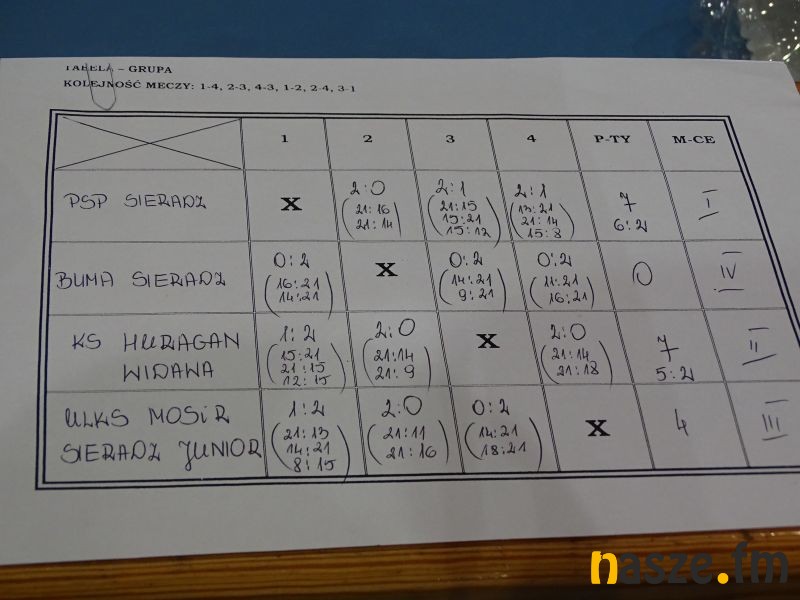 TABELA – GRUPA
KOLEJNOŚĆ MECZY: 1-4, 2-3, 4-3, 1-2, 2-4, 3-1
1 2 3 4 P-TY M-CE
PSP SIERADZ X 2:0 (21:16 21:14) 2:1 (21:15 15:21 15:12) 2:1 (13:21 21:14 15:8) 7 6:2 I
BUMA SIERADZ 0:2 (16:21 14:21) X 0:2 (14:21 9:21) 0:2 (11:21 16:21) 0 IV
KS HURAGAN WIDAWA 1:2 (15:21 21:15 12:15) 2:0 (21:14 21:9) X 2:0 (21:14 21:18) 7 5:2 II
ULKS MOSiR SIERADZ JUNIOR 1:2 (21:13 14:21 8:15) 2:0 (21:11 21:16) 0:2 (14:21 18:21) X 4 III
nasze.fm